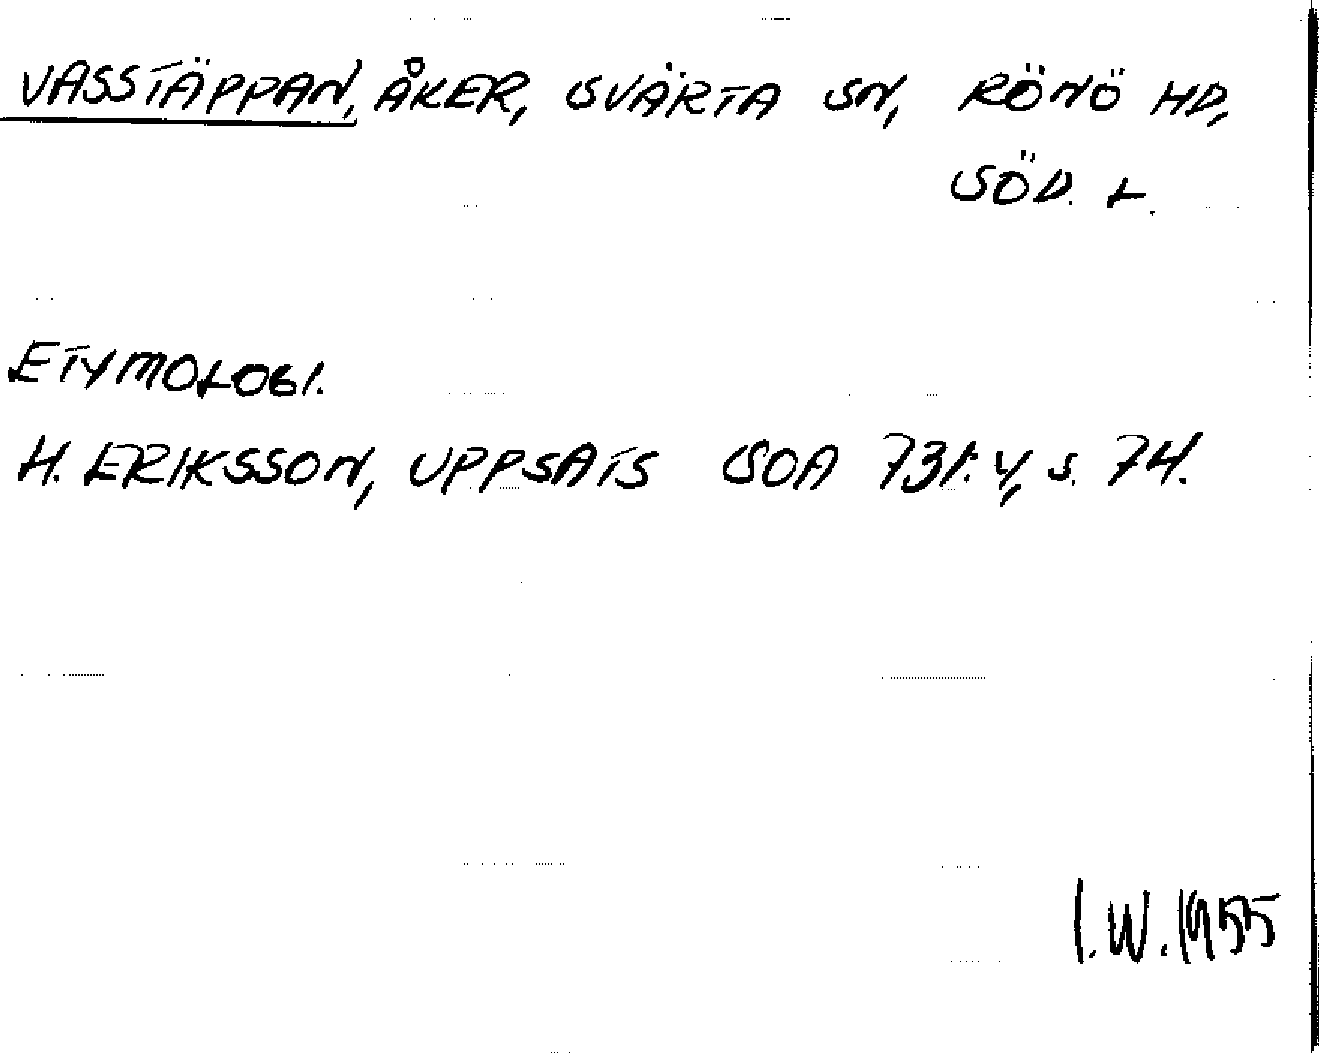 VASSTÄPPAN, ÅKER, SVÄRTA SN, RÖNÖ HD,
SÖD. L.
ETYMOLOGI.
H. ERIKSSON, UPPSATS SOA 731:4, s. 74.
I.W. 1955